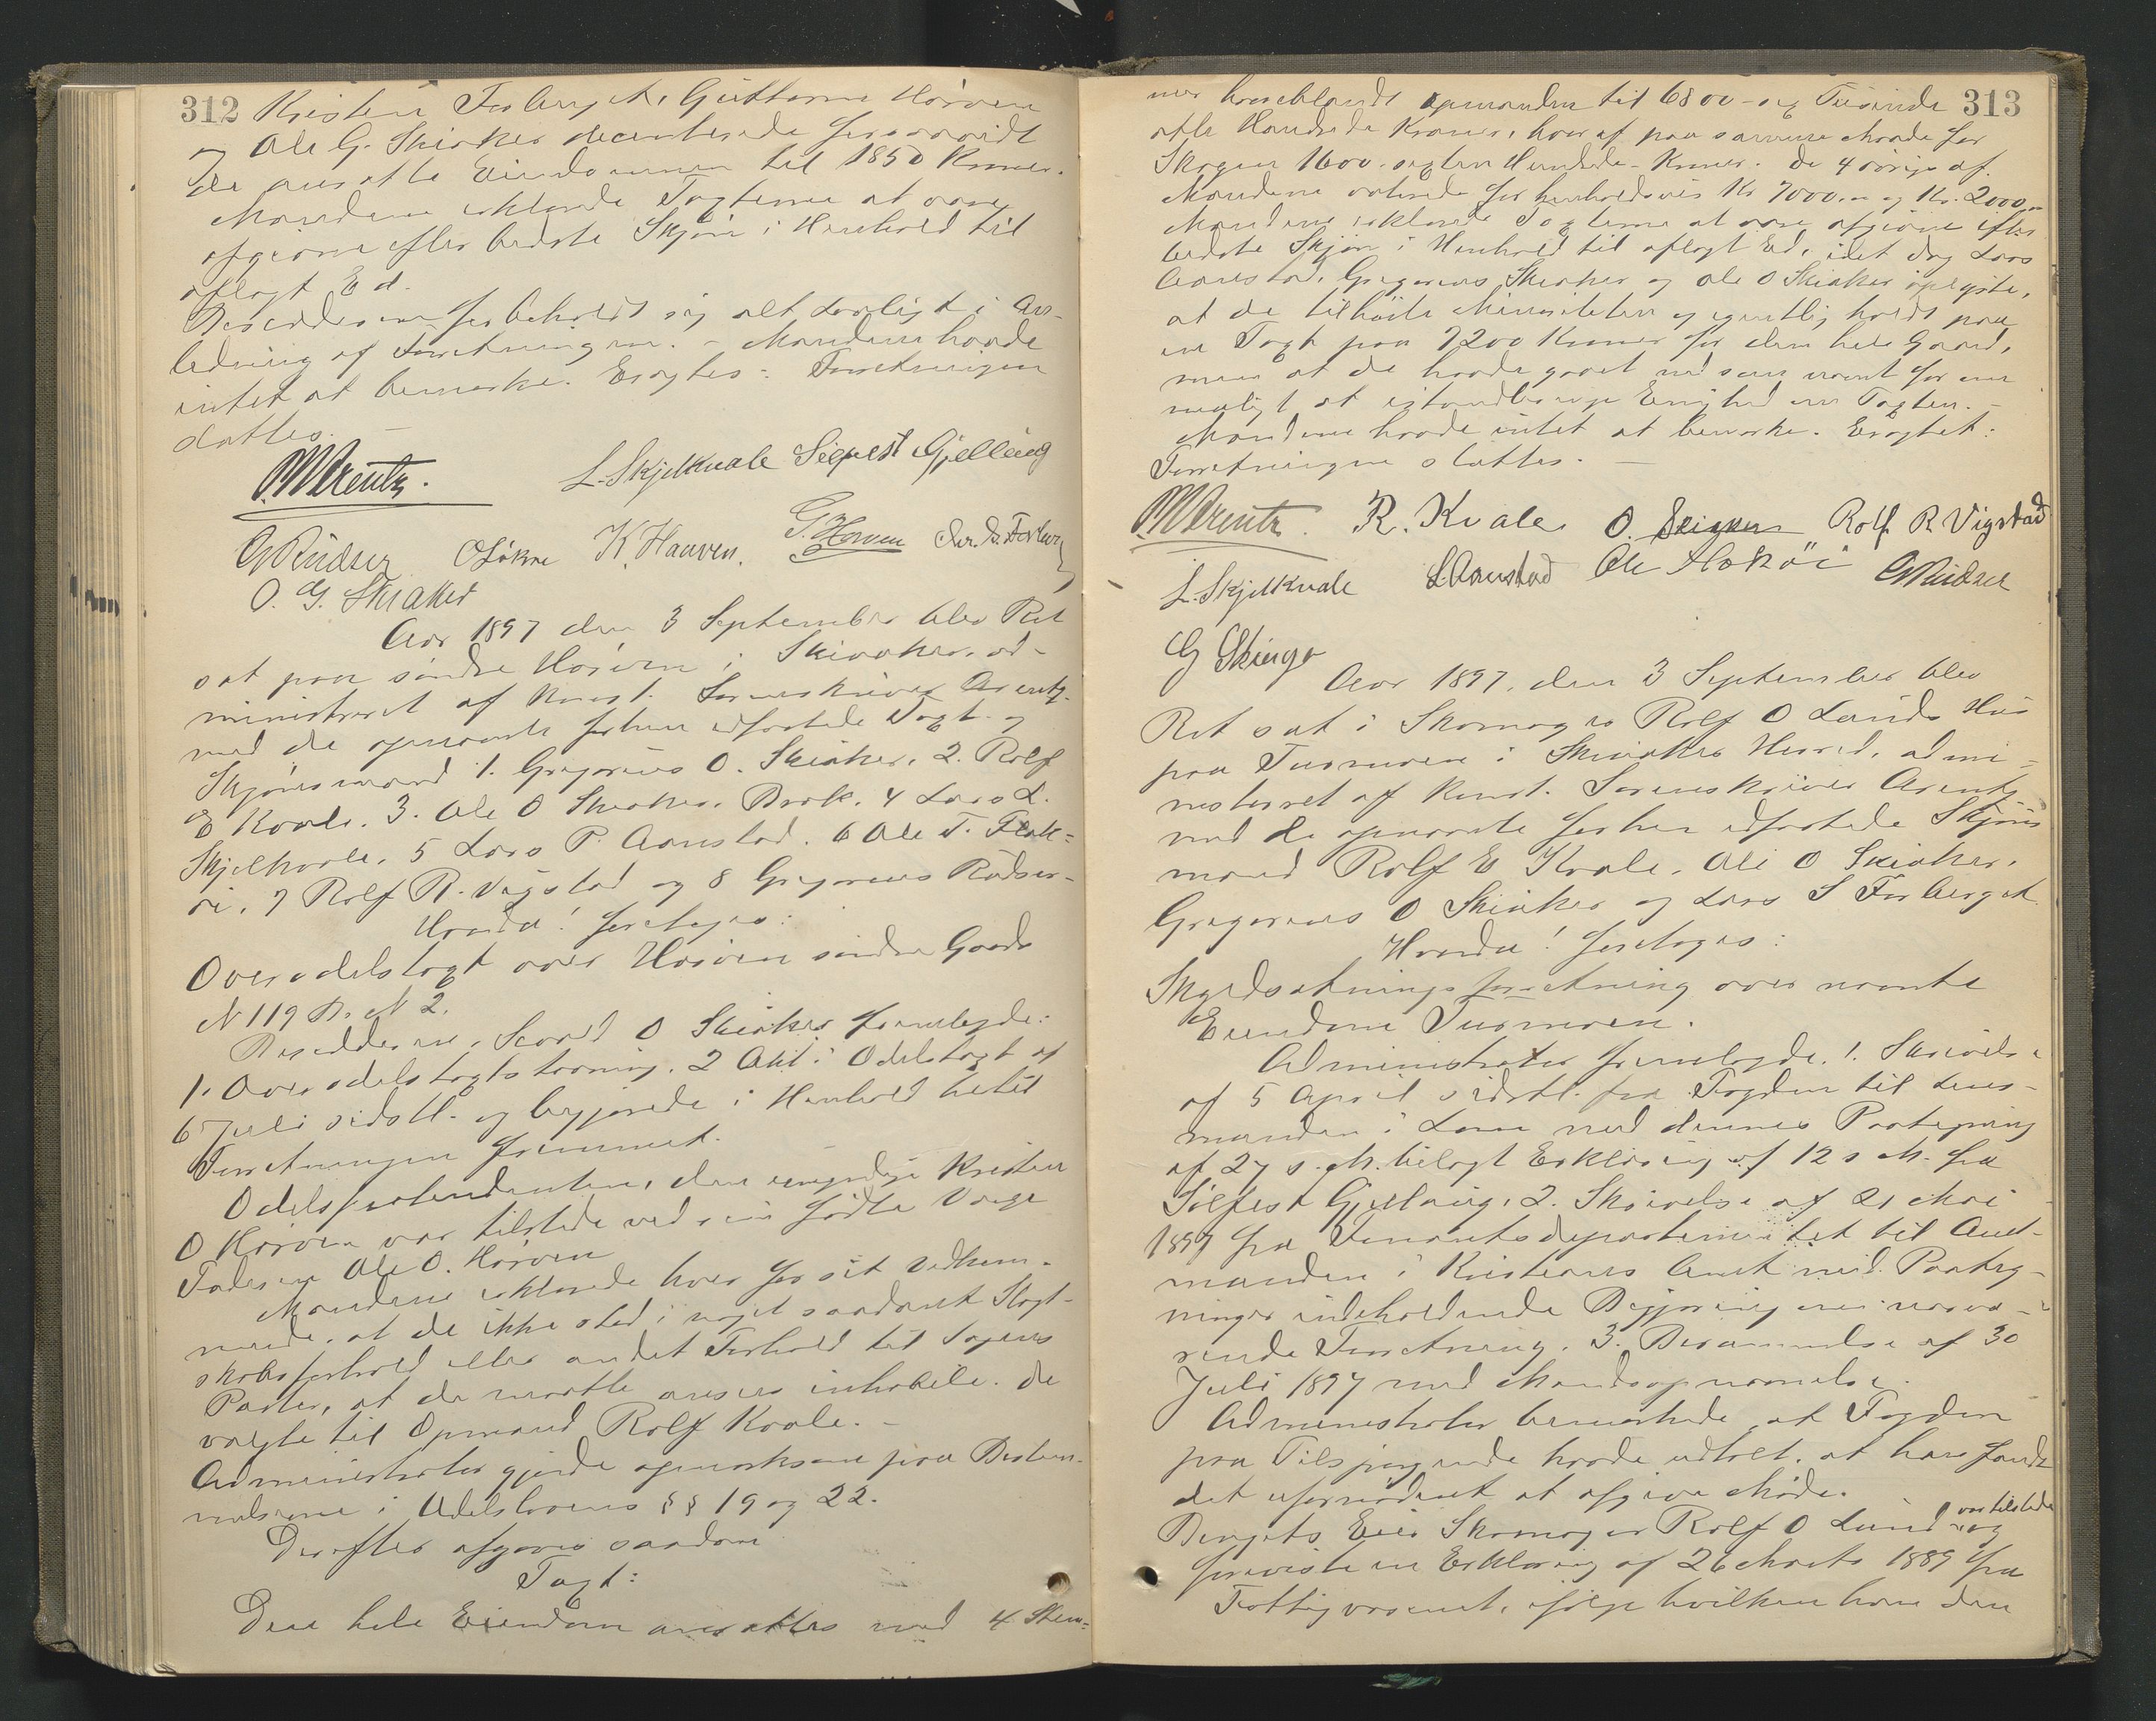 312
Kristen Forberget, Guttorm Hörven
og Ole G. Skiaker decenterede forsaavidt
de ansatte Eiendommen til 1850 Kroner.
Mændene erklærede Taxterne at være
afgivne efter bedste Skjön i Henhold til
aflagt Ed.
forbeholdt sig alt Lovligt i An-
ledning af Forretningen. - Mændene havde
intet at bemærke. Eragtes: Forretningen
sluttes. -
MArentz. L. Skjelkvale Sigvest Gjelleng
G Rudser O Lökre K. Hauven. G. Horven
O. G. Skiaker
Aar 1897 den 3 September blev Ret
sat paa söndre Hörven i Skiaker, ad-
ministreret af konst. Sorenskriver Arentz.
med de opnævnte forhen edfæstede Taxt- og
Skjönsmænd 1. Gregorius O. Skiaker, 2. Rolf
E Kvale. 3. Ole O Skiaker. Brok. 4 Lars L.
Skjelkvale, 5 Lars P. Aanstad. 6 Ole T. Flek-
öi, 7 Rolf R. Vigstad og 8 Gregorius Rudser-
Hvorda! foretoges:
Overodelstaxt over Hörven söndre Gaards
N 119 B. N 2.
O Skiaker fremlagde:
1. Overodelstaxtstævning. 2 Akt i Odelstaxt af
6 Juli sidstl. og begjærede i Henhold hertil
Forretningen fremmet.
Odelsprætendenten, den umyndige Kristen
O Hörven var tilstede ved sin födte Værge
Faderen Ole O. Hörven
Mændene erklærede hver for sit Vedkom-
mende, at de ikke stod i noget saadant Slægt-
skabsforhold eller andet Forhold til Sagens
Parter, at de maatte ansees inhabile. De
valgte til Opmand Rolf Kvale. -
Administrator gjorde opmærksom paa Bestem-
melserne i Odelslovens §§ 19 og 22.
Derefter afgaves saadan
Taxt:
Den hele Eiendom ansættes med 4 Stem-
313
mer hvoriblandt Opmanden til 6800 - sex Tusinde
otte Hundrede Kroner, hvoraf paa samme Maade for
Skogen 1600 - sexten Hundrede - Kroner. De 4 övrige af
Mændene voterede for henholdsvis Kr 7000,- og Kr. 2000,-
Mændene erklærede Taxterne at være afgivne efter
bedste Skjön i Henhold til aflagt Ed, idet dog Lars
Aanstad, Gregorius Skiaker og Ole O Skiaker oplyste,
at de tilhörte Minoriteten og egentlig holdt paa
en Taxt paa 7200 Kroner for den hele Gaard,
men at de havde gaaet ned som nævnt for om
muligt at istandbringe Enighed om Taxten. -
Mændene havde intet at bemærke. Eragtet:
Forretningen sluttes. -
MArentz. R. Kvale O. Skiaker Rolf R Vigstad
L. Skjelkvale L Aanstad Ole Flekøi G Rudser
G Skiager
Aar 1897, den 3 September blev
Ret sat i Skomager Rolf O Lunds Hus
paa Turmoen i Skiaker Herred, admi-
nistreret af konst. Sorenskriver Arentz
med de opnævnte forhen edfæstede Skjöns
mænd Rolf E Kvale. Ole O Skiaker.
Gregorius O Skiaker og Lars S Forberget
Hvorda! foretoges:
Skyldsætningsforretning over nævnte
Eiendom Turmoen.
Administrator fremlagde. 1. Skrivelse
af 5 April sidstl. fra Fogden til Lens-
manden i Lom med dennes Paategning
af 27 s. M. bilagt Erklæring af 12 s M. fra
Sölfest Gjelleng, 2. Skrivelse af 21 Mai
1897 fra Finantsdepartementet til Amt-
manden i Kristians Amt med Paateg-
ninger indeholdende Begjæring om nærvæ-
rende Forretning. 3. Berammelse af 30
Juli 1897 med Mandsopnævnelse.
Administrator bemærkede, at Fogden
paa Tilspörgende havde udtalt, at han fandt
det ufornödent at afgive Möde.
Brugets Eier Skomager Rolf O Lund var tilstede og
foreviste en Erklæring af 26 Marts 1889 fra
Fattigvæsenet, ifölge hvilken han den